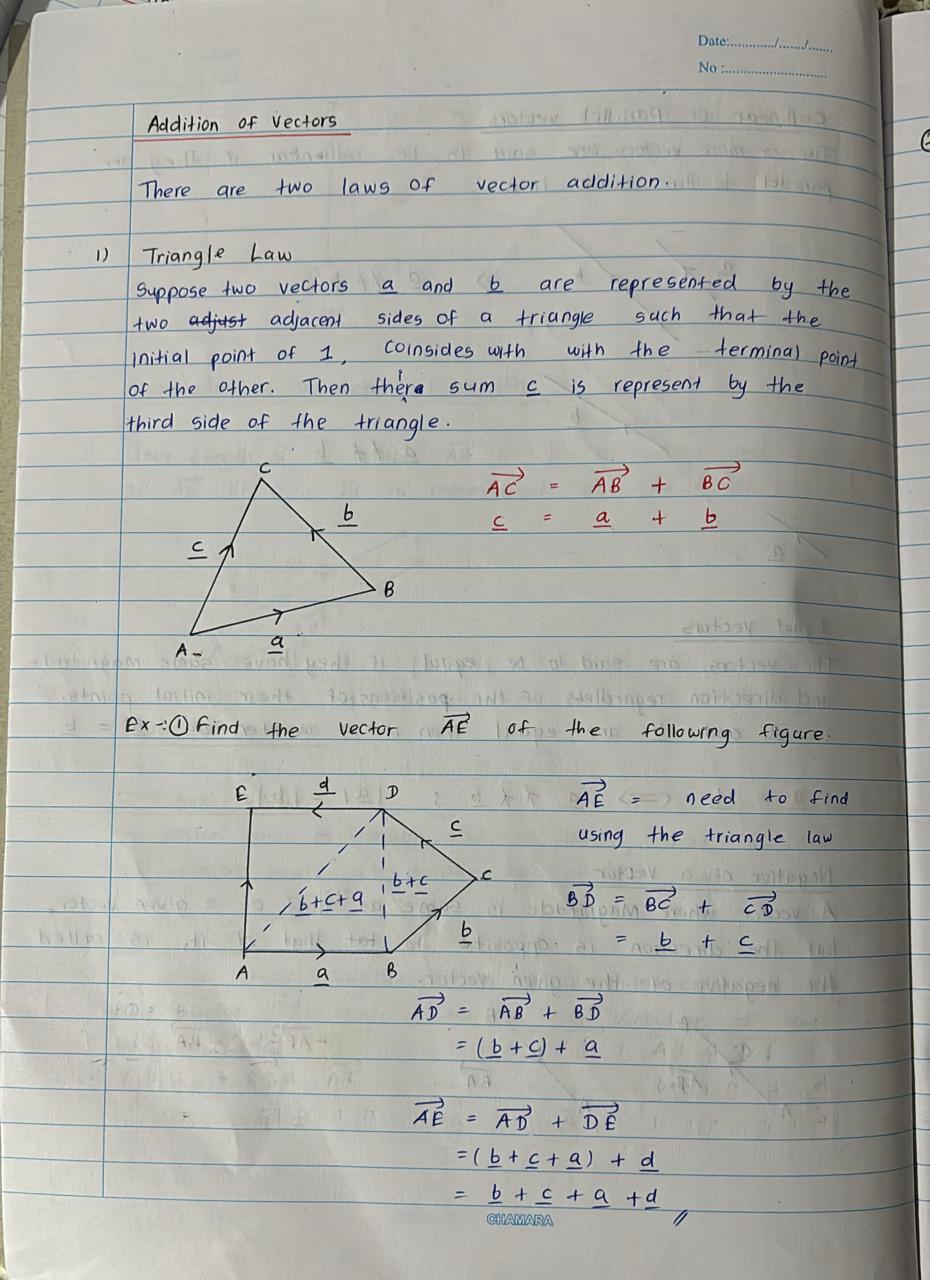 Date:............/......../.......
No :...............................
Addition of vectors
There are two laws of vector addition.
1) Triangle Law
Suppose two vectors a and b are represented by the
two adjust adjacent sides of a triangle such that the
initial point of 1, coinsides with with the terminal point
of the other. Then their sum c is represent by the
third side of the triangle.
C
AC = AB + BC
c = a + b
b
c
B
A
a
Ex :- ① Find the vector AE of the following figure.
E d D
AE = need to find
using the triangle law
c
C
b+c
b+c+a
BD = BC + CD
= b + c
b
A a B
AD = AB + BD
= (b + c) + a
AE = AD + DE
= (b + c + a) + d
= b + c + a + d //
CHAMARA